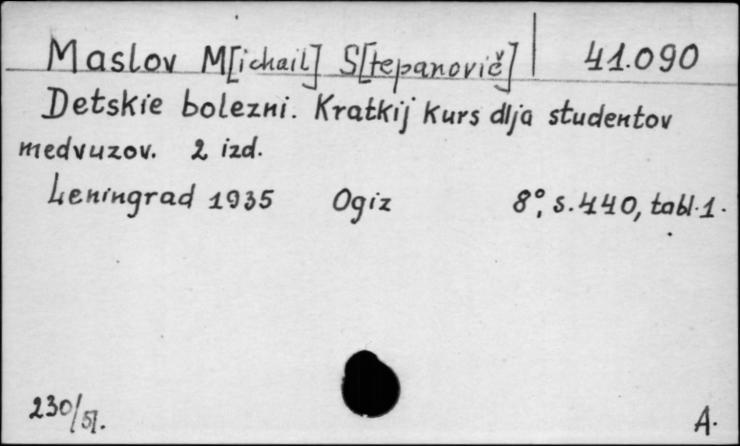 Maslov M[ichail] S[tepanovič] 41.090
Detskie bolezni. Kratkij kurs dlja studentov
medvuzov. 2 izd.
Leningrad 1935 Ogiz 8°, s. 440, tabl. 1.
230/51.
A.